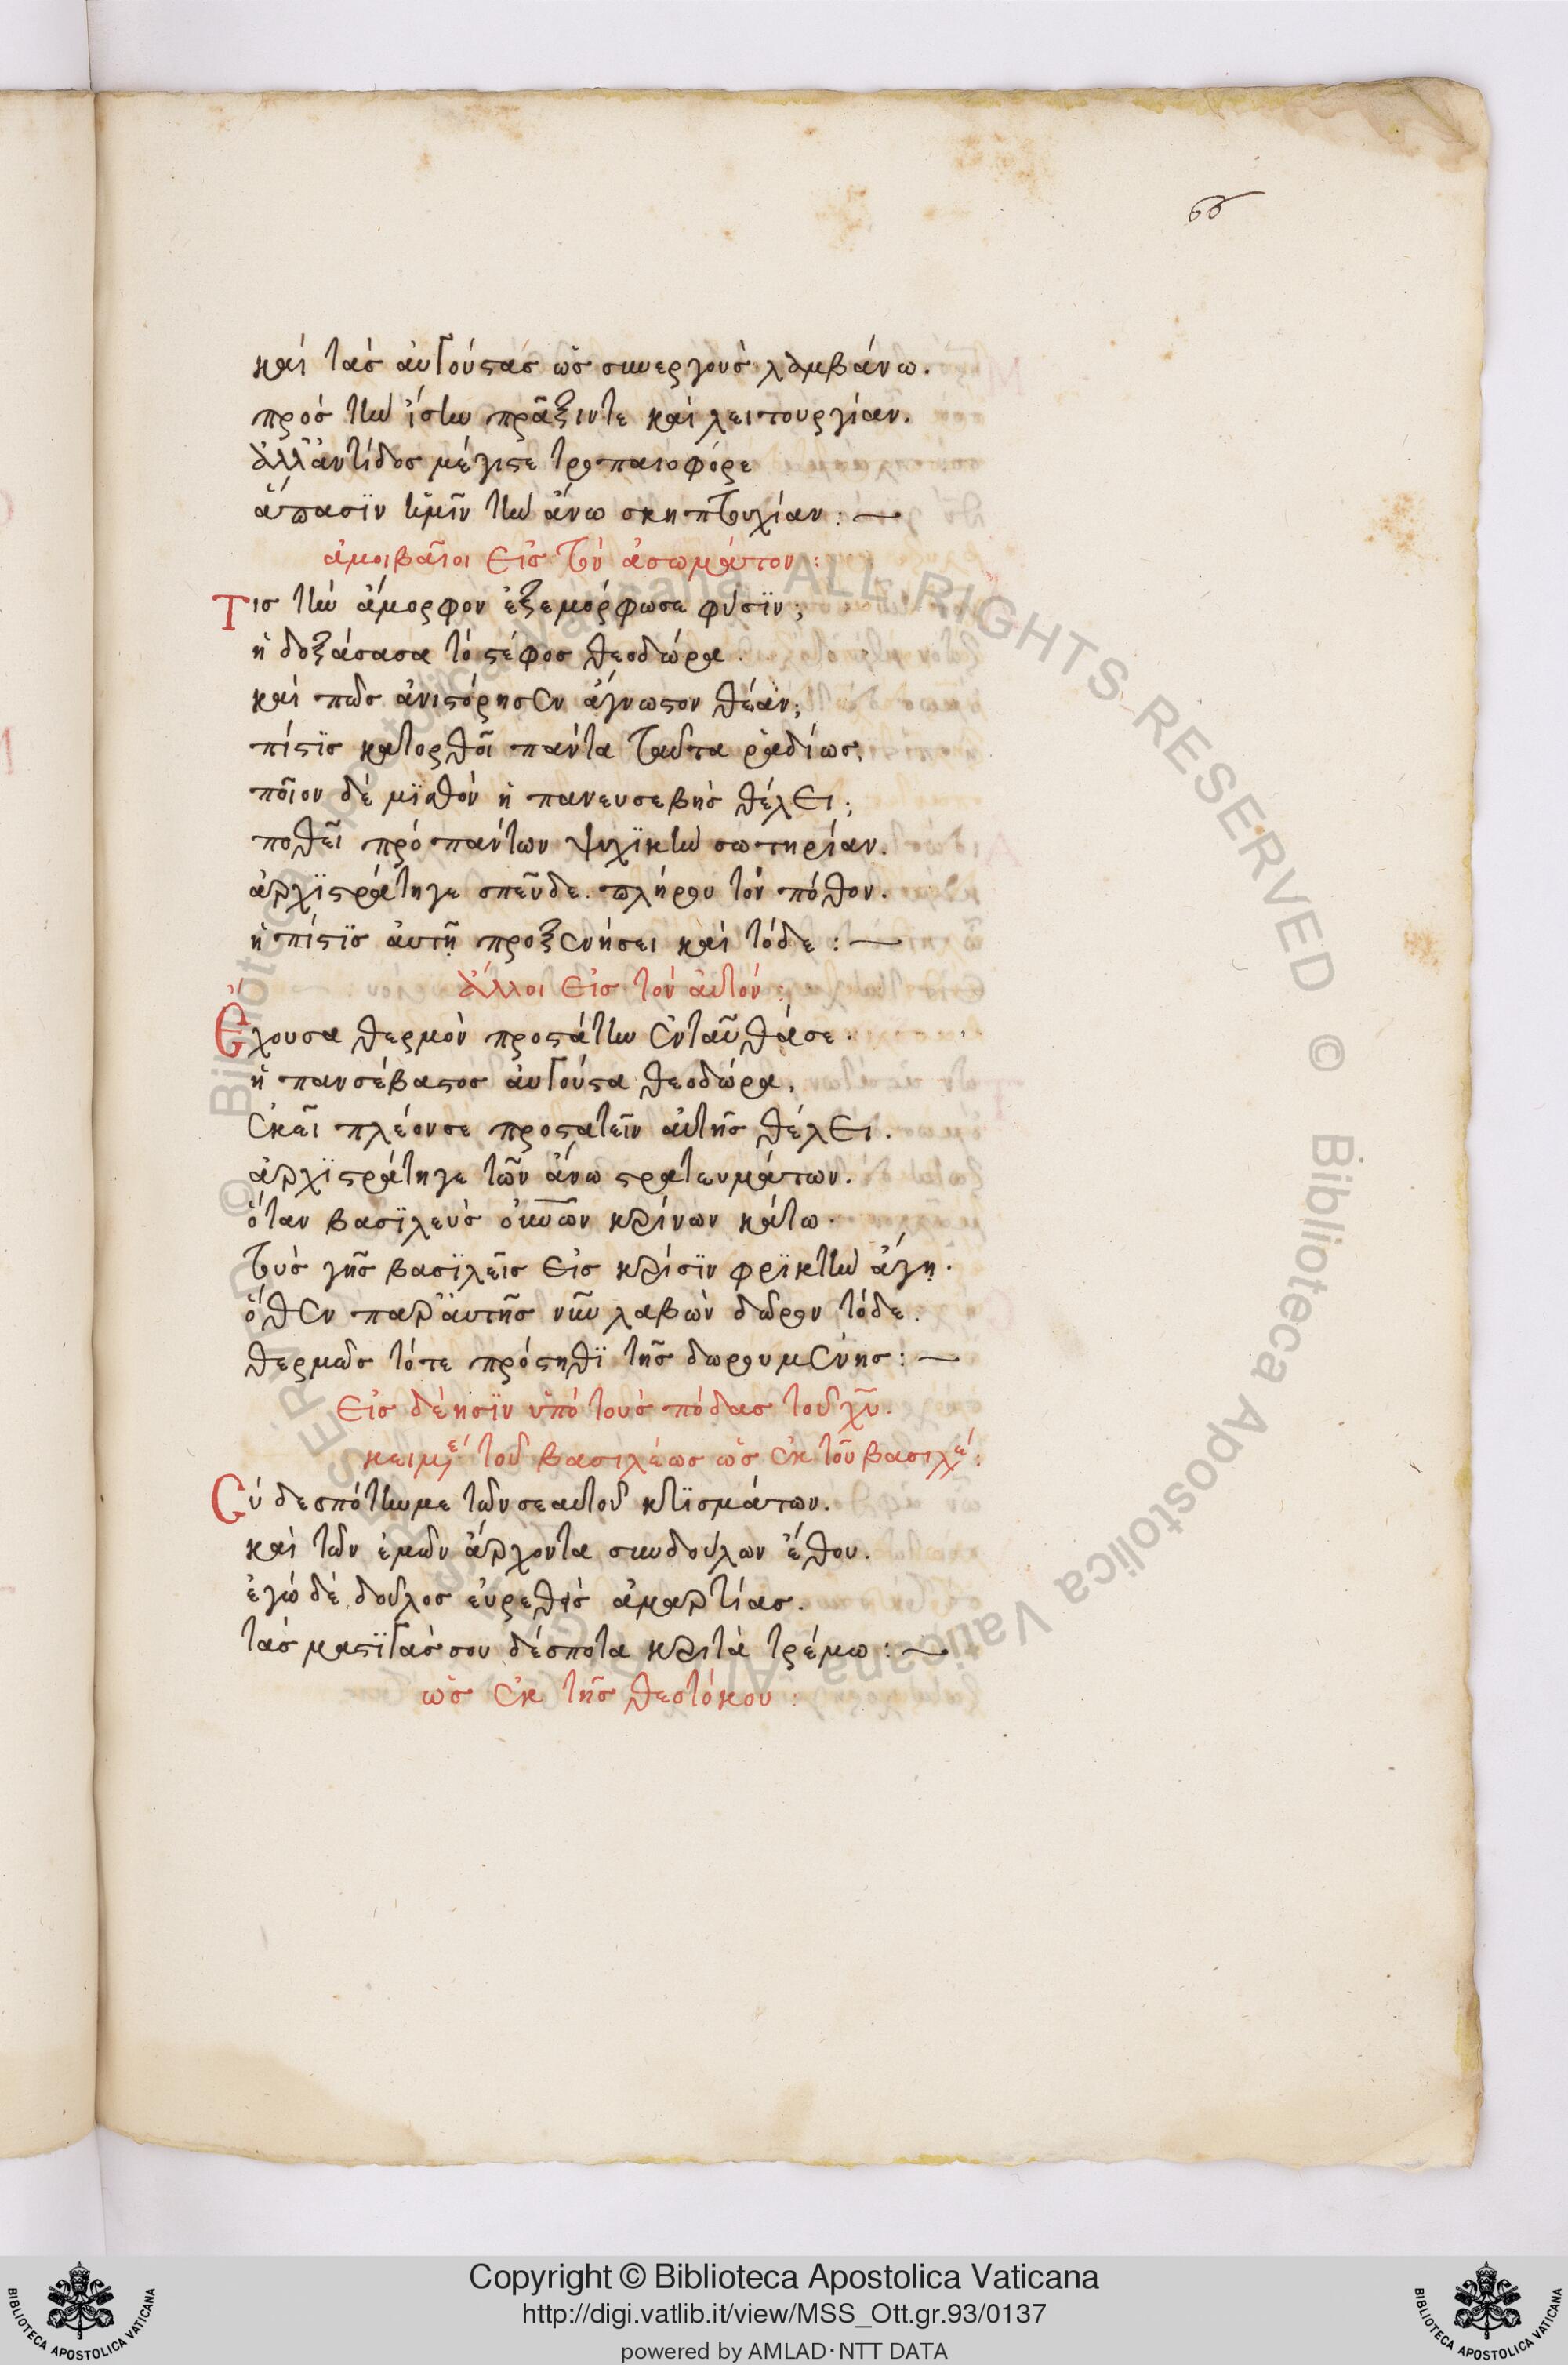 66
καὶ τὰς αὐγούστας ὡς συνεργοὺς λαμβάνω.
πρὸς τὴν ἴσην πρᾶξιν τε καὶ λειτουργίαν.
ἀλλ' ἀντίδος μέγιστε τροπαιοφόρε
ἅπασϊν ἡμῖν τὴν ἄνω σκηπτουχίαν :
ἀμοιβαῖοι εἰς τὸν ἀσώματον :
Τίς τὴν ἄμορφον ἐξεμόρφωσε φύσϊν;
ἡ δοξάσασα τὸ στέφος θεοδώρα.
καὶ πῶς ἀνιστόρησεν ἄγνωστον θέαν;
πίστϊς κατορθοῖ πάντα ταῦτα ῥαδίως.
ποῖον δὲ μϊσθὸν ἡ πανευσεβὴς θέλει;
ποθεῖ πρὸ πάντων ψυχϊκὴν σωτηρίαν.
ἀρχϊστράτηγε σπεῦδε. πλήρου τὸν πόθον.
ἡ πίστϊς αὐτῇ προξενήσει καὶ τόδε :
ἄλλοι εἰς τὸν αὐτόν :
Ἔχουσα θερμὸν προστάτην ἐνταῦθά σε.
ἡ πανσέβαστος αὐγούστα θεοδώρα,
ἐκεῖ πλέον σε προστατεῖν αὐτῆς θέλει.
ἀρχϊστράτηγε τῶν ἄνω στρατευμάτων.
ὅταν βασϊλεὺς οὐνῶν κρίνων κάτω.
τοὺς γῆς βασϊλεῖς εἰς κρίσϊν φρϊκτὴν ἄγῃ.
ὅθεν παρ' αὐτῆς νῦν λαβὼν δῶρον τόδε.
θερμῶς τότε πρόστηθϊ τῆς δωρουμένης :
εἰς δέησϊν ὑπὸ τοὺς πόδας τοῦ χῦ.
κειμέ τοῦ βασιλέως ὡς ἐκ τοῦ βασιλέ :
Σὺ δεσπότην με τῶν σεαυτοῦ κτϊσμάτων.
καὶ τῶν ἐμῶν ἄρχοντα συνδούλων ἔθου.
ἐγὼ δὲ δοῦλος εὑρεθεὶς ἁμαρτίας.
τὰς μαστϊγάς σου δέσποτα κριτὰ τρέμω :
ὡς ἐκ τῆς θεοτόκου :
© Biblioteca Apostolica Vaticana ALL RIGHTS RESERVED © Biblioteca Apostolica Vaticana
Copyright © Biblioteca Apostolica Vaticana
http://digi.vatlib.it/view/MSS_Ott.gr.93/0137
powered by AMLAD·NTT DATA
BIBLIOTECA APOSTOLICA VATICANA
BIBLIOTECA APOSTOLICA VATICANA